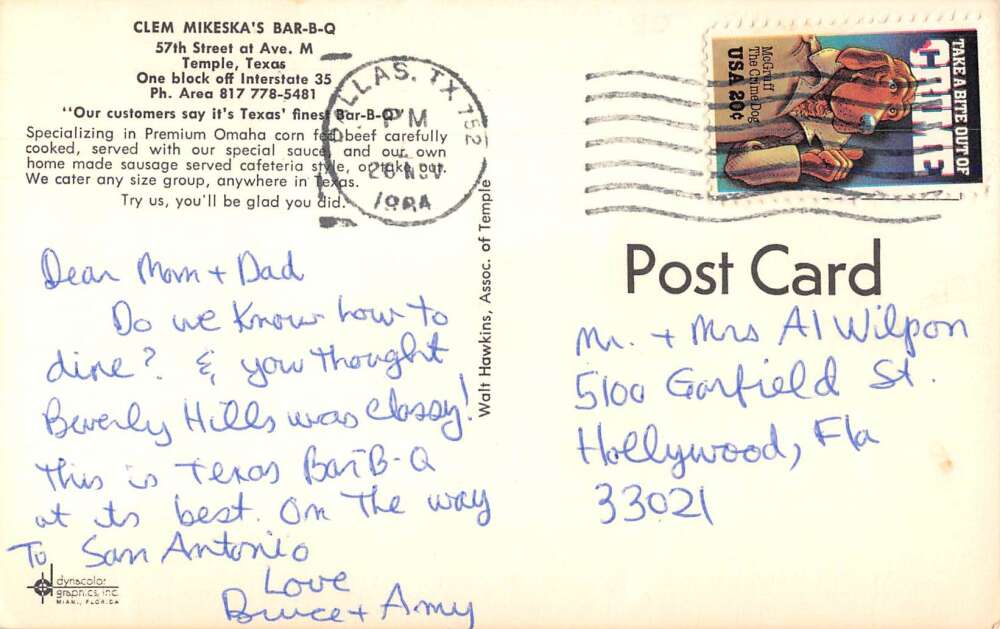 CLEM MIKESKA'S BAR-B-Q
57th Street at Ave. M
Temple, Texas
One block off Interstate 35
Ph. Area 817 778-5481
"Our customers say it's Texas' finest Bar-B-Q"
Specializing in Premium Omaha corn fed beef carefully
cooked, served with our special sauce and our own
home made sausage served cafeteria style, or take out.
We cater any size group, anywhere in Texas.
Try us, you'll be glad you did.
DALLAS, TX 752
PM
28 NOV
1984
TAKE A BITE OUT OF
CRIME
McGruff
The Crime Dog
USA 20¢
Walt Hawkins, Assoc. of Temple
Post Card
Dear Mom + Dad
Do we know how to
dine? & you thought
Beverly Hills was classy!
This is Texas Bar B-Q
at its best. On the way
To San Antonio
Love
Bruce + Amy
Mr. + Mrs Al Wilpon
5100 Garfield St.
Hollywood, Fla
33021
dynacolor
graphics, inc.
MIAMI, FLORIDA